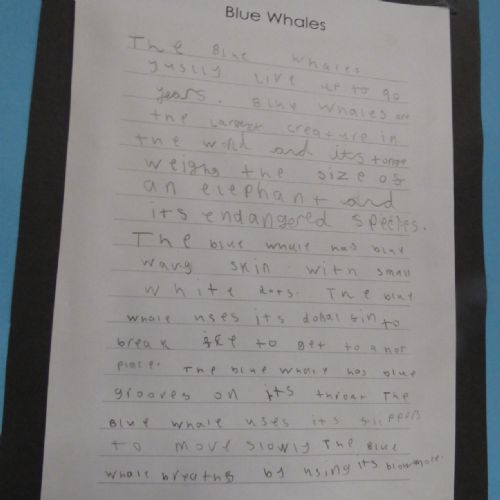 Blue Whales
The Blue whales
yuslly live up to 90
years. Blue whales are
the largest creature in
the world and its tonge
weighs the size of
an elephant and
its endangered species.
The blue whale has blue
wavg skin with small
white dots. The blue
whale uses its dosal fin to
break ice to get to a not
place. The blue whale has blue
grooves on its throat The
Blue whale uses its
to move slowly The Blue
whale breaths by using its blow